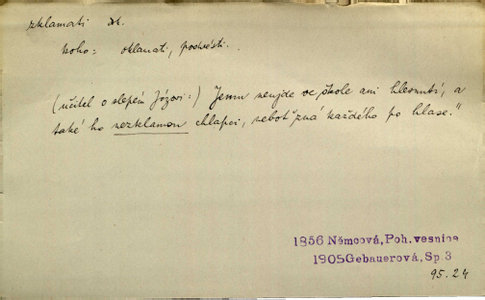 zklamati dk.
koho: oklamati, podvésti.
(učitel o slepém Józovi:) Jemu neujde ve škole ani hlesnutí, a
také ho nezklamou chlapci, neboť zná každého po hlase."
1856 Němcová, Poh. vesnice
1905 Gebauerová, Sp 3
95.24